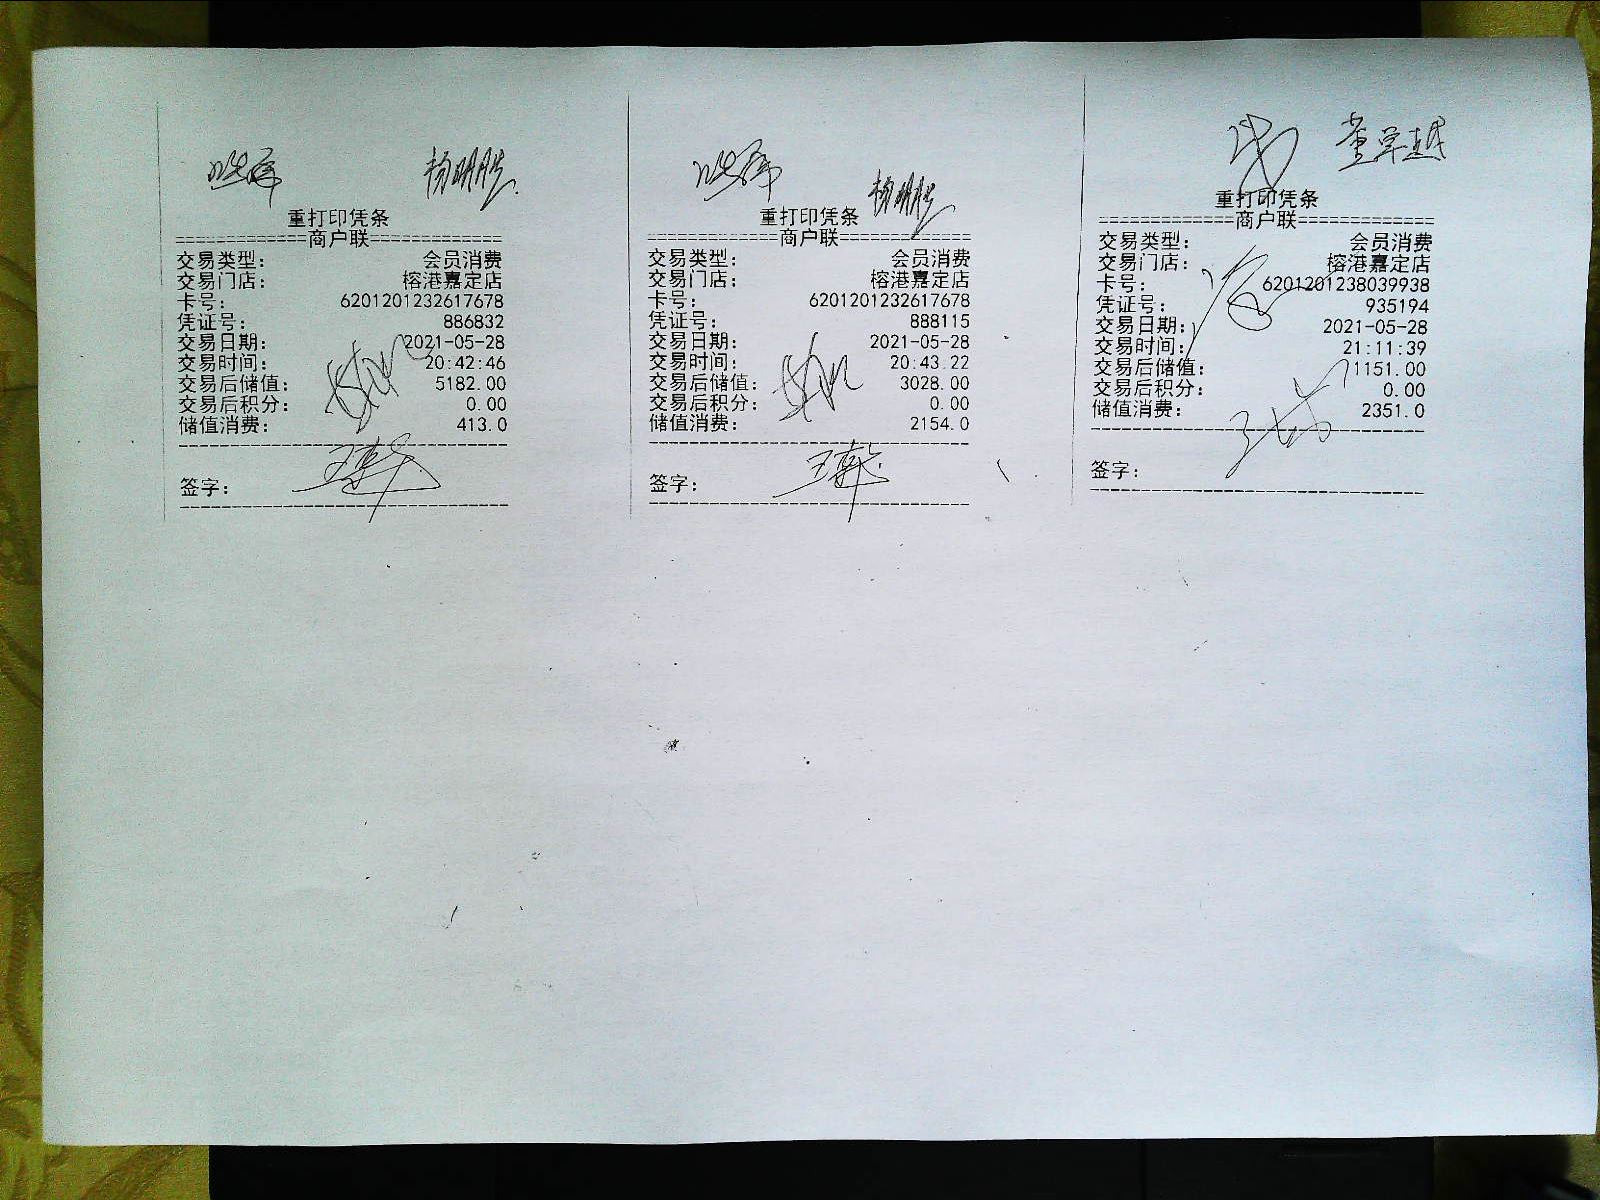 杨明胜
重打印凭条
=============商户联=============
交易类型: 会员消费
交易门店: 榕港嘉定店
卡号: 6201201232617678
凭证号: 886832
交易日期: 2021-05-28
交易时间: 20:42:46
交易后储值: 5182.00
交易后积分: 0.00
储值消费: 413.0
签字:
杨明胜
重打印凭条
=============商户联=============
交易类型: 会员消费
交易门店: 榕港嘉定店
卡号: 6201201232617678
凭证号: 888115
交易日期: 2021-05-28
交易时间: 20:43:22
交易后储值: 3028.00
交易后积分: 0.00
储值消费: 2154.0
签字:
董卓越
重打印凭条
=============商户联=============
交易类型: 会员消费
交易门店: 榕港嘉定店
卡号: 6201201238039938
凭证号: 935194
交易日期: 2021-05-28
交易时间: 21:11:39
交易后储值: 1151.00
交易后积分: 0.00
储值消费: 2351.0
签字: